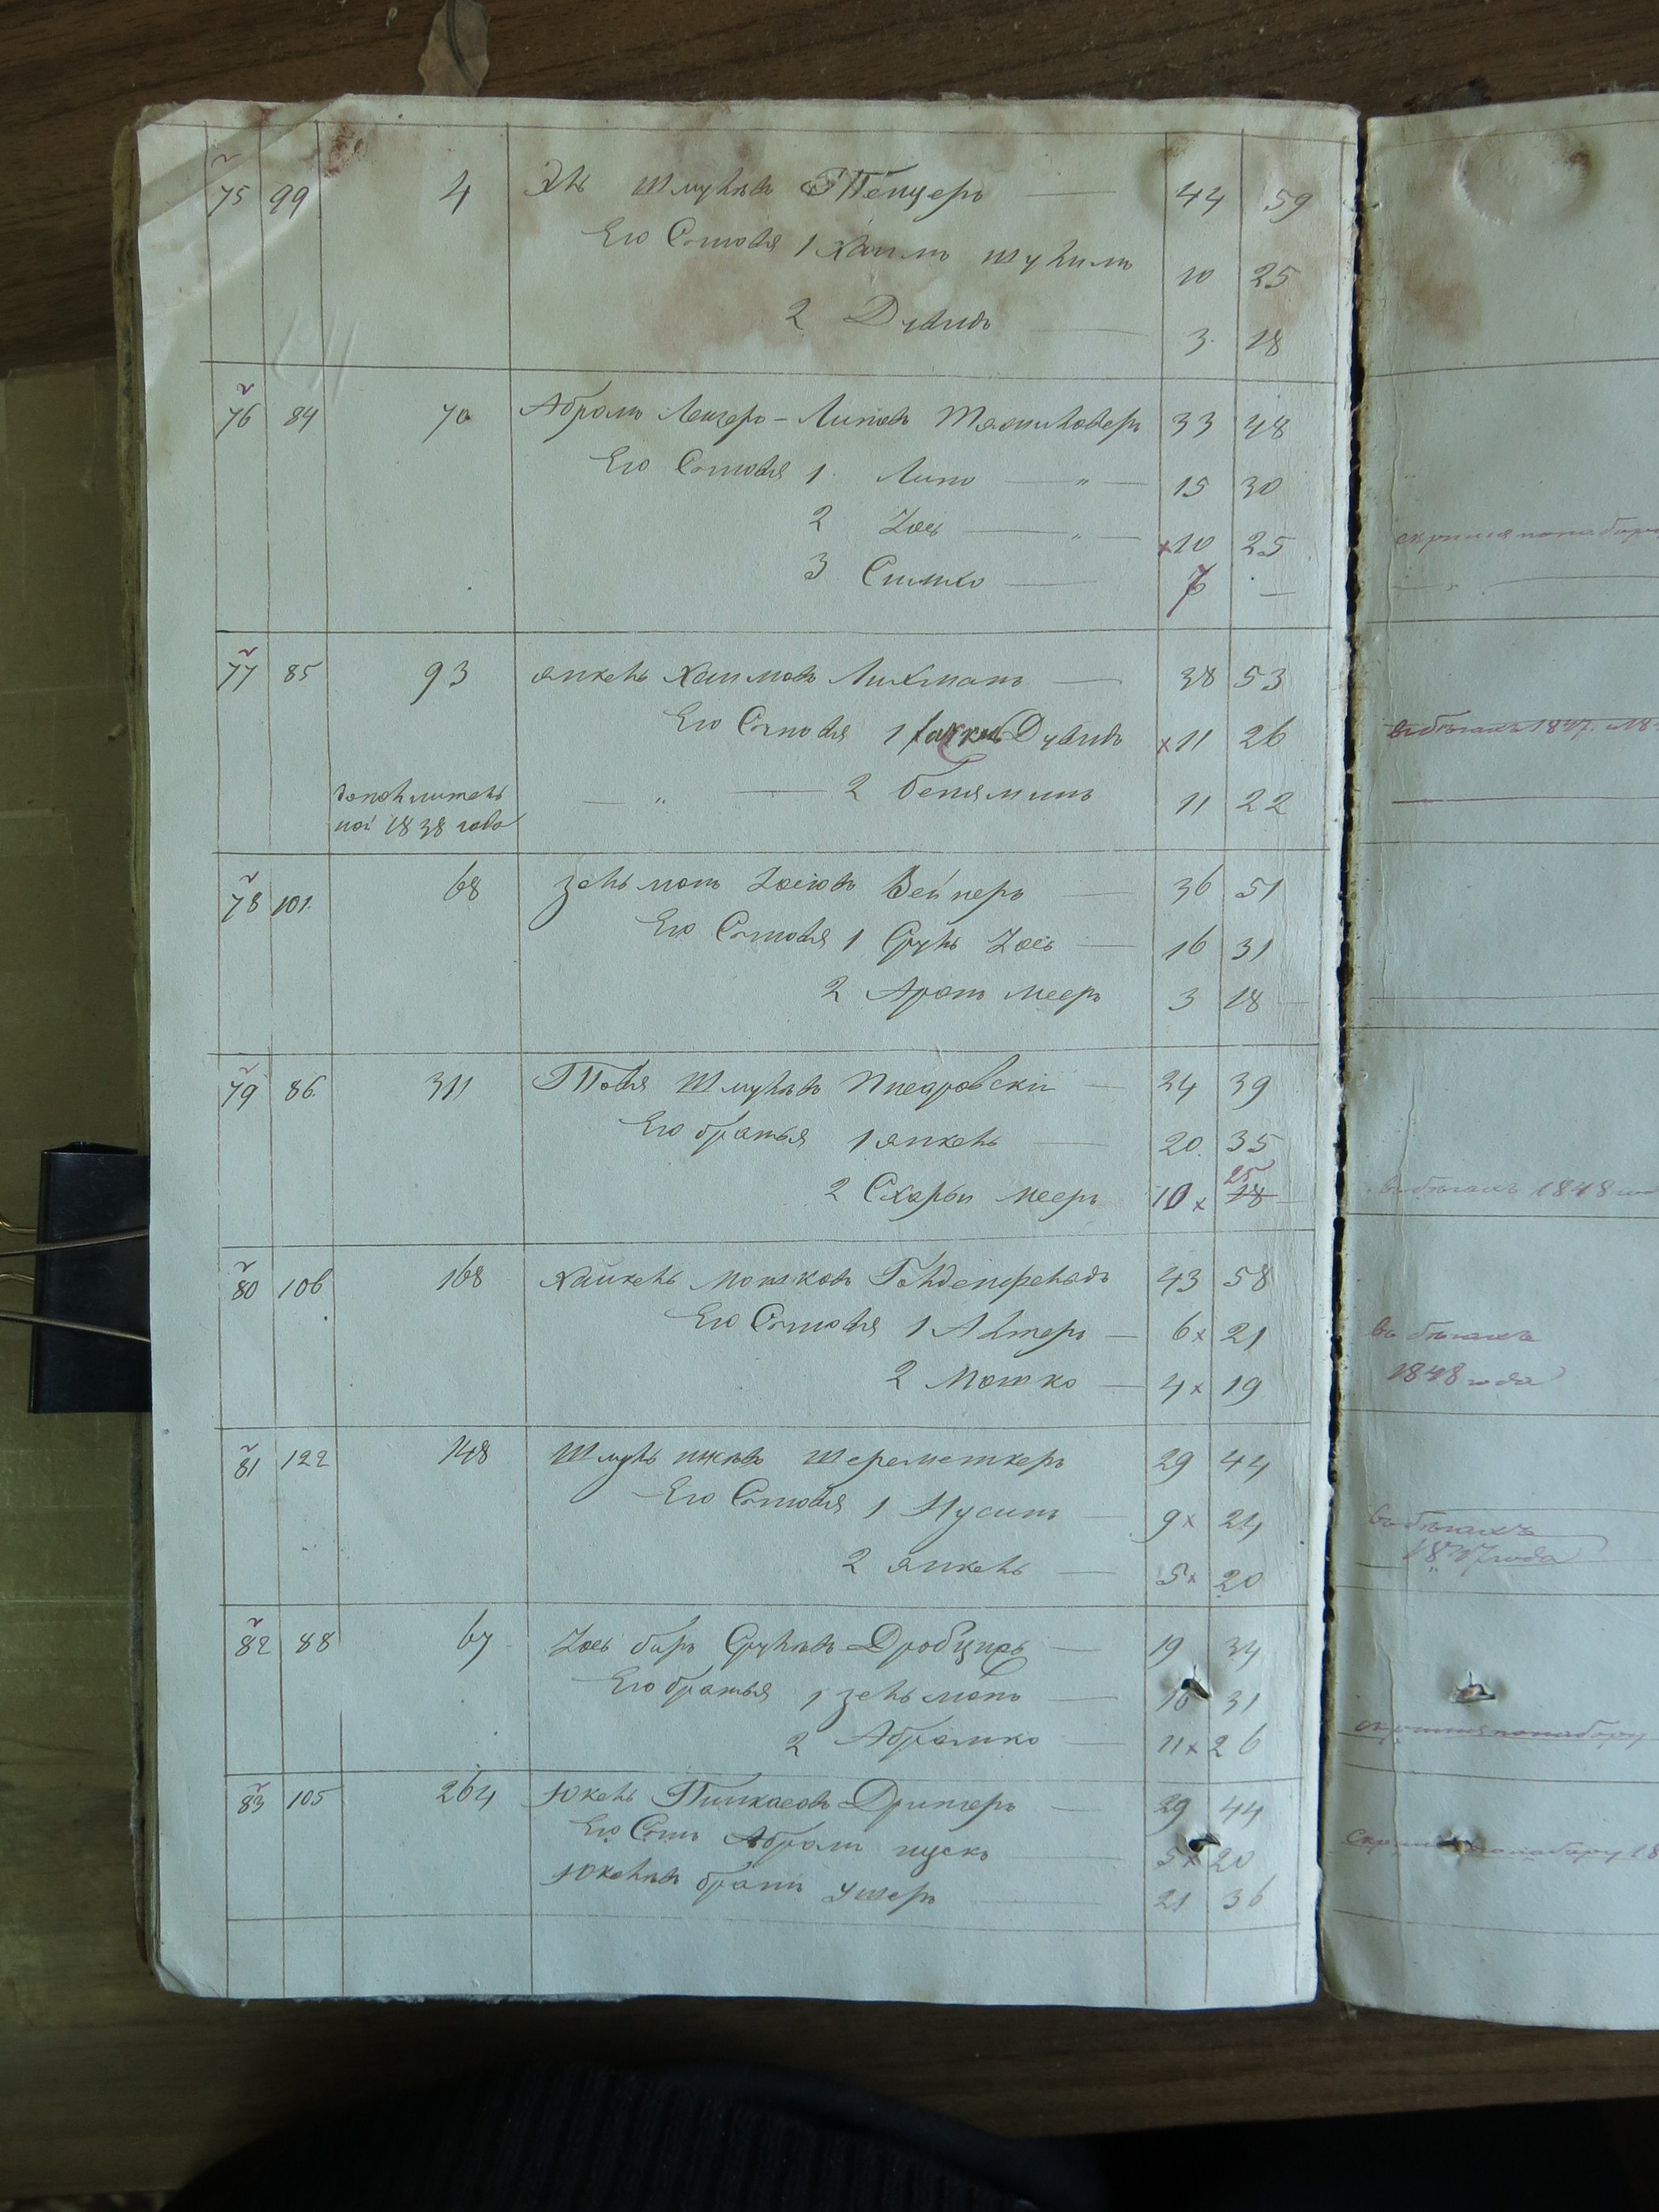 75 99 4 Эль Шмулевъ Тепцеръ 44 59
Его Сыновья 1 Хаимъ Шулимъ 10 25
2 Дувидъ 3 18
76 84 70 Абрамъ Лейзеръ-Липовъ 33 48
Его Сыновья 1 Липа " 15 30
2 Іось " ×10 25
3 Симха 7 —
77 85 93 Янкель Хаимовъ Лихтманъ 38 53
Его Сыновья 1 Дувидъ ×11 26
— " — 2 Беніаминъ 11 22
ной 1838 года
78 101 68 Зельманъ Іосіовъ Вейнеръ 36 51
Его Сыновья 1 Сруль Іось 16 31
2 Аронъ Мееръ 3 18
79 86 311 Товія Шмулевъ Писаровскій 24 39
Его братья 1 Янкель 20 35
25
2 Мееръ 10 × 18
80 106 168 Хайкель Мошковъ 43 58
Его Сыновья 1 Альтеръ 6 × 21
2 Мошко 4 × 19
81 122 148 Шмуль Ицковъ Шереметкеръ 29 44
Его Сыновья 1 Нусинъ 9 × 24
2 Янкель 5 × 20
82 88 67 Іось Беръ Срулевъ 19 34
Его братья 1 Зельманъ 16 31
2 Абрамко 11 × 26
83 105 264 Юкель Пинкасовъ 29 44
Его Сынъ Абрамъ 5 × 20
Юкелевъ братъ Ушеръ 21 36
въ бѣгахъ 1847
въ бѣгахъ 1848
въ бѣгахъ
1848 года
въ бѣгахъ
1847 года